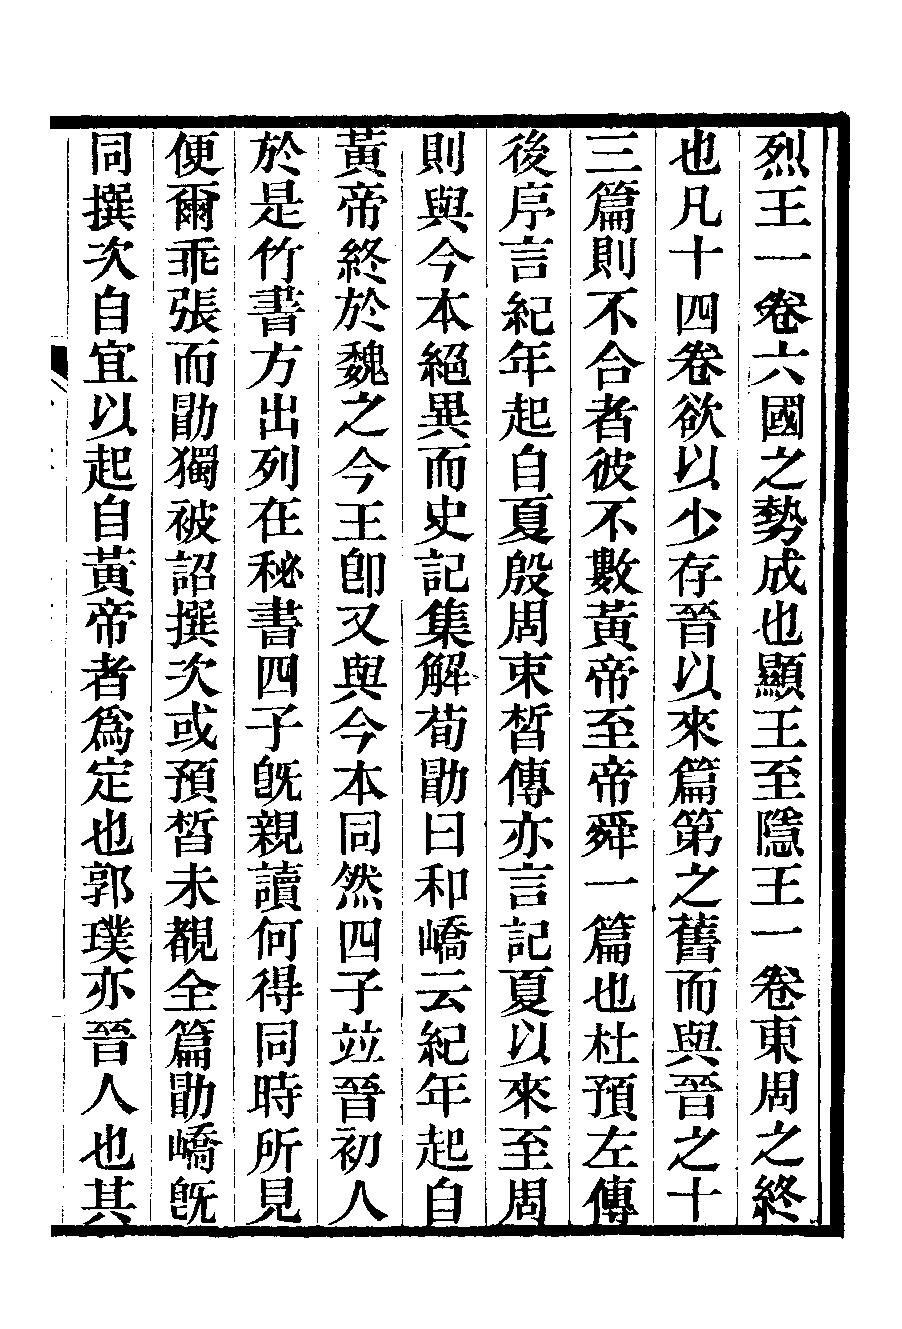 烈王一卷六國之勢成也顯王至隱王一卷東周之終
也凡十四卷欲以少存晉以來篇第之舊而與晉之十
三篇則不合者彼不數黃帝至帝舜一篇也杜預左傳
後序言紀年起自夏殷周束皙傳亦言記夏以來至周
則與今本絕異而史記集解荀勖曰和嶠云紀年起自
黃帝終於魏之今王卽又與今本同然四子竝晉初人
於是竹書方出列在秘書四子旣親讀何得同時所見
便爾乖張而勖獨被詔撰次或預皙未覩全篇勖嶠旣
同撰次自宜以起自黃帝者爲定也郭璞亦晉人也其